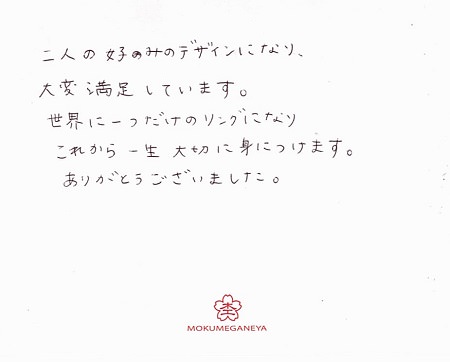 二人の好のみのデザインになり、
大変満足しています。
世界に一つだけのリングになり
これから一生大切に身につけます。
ありがとうございました。
杢
MOKUMEGANEYA